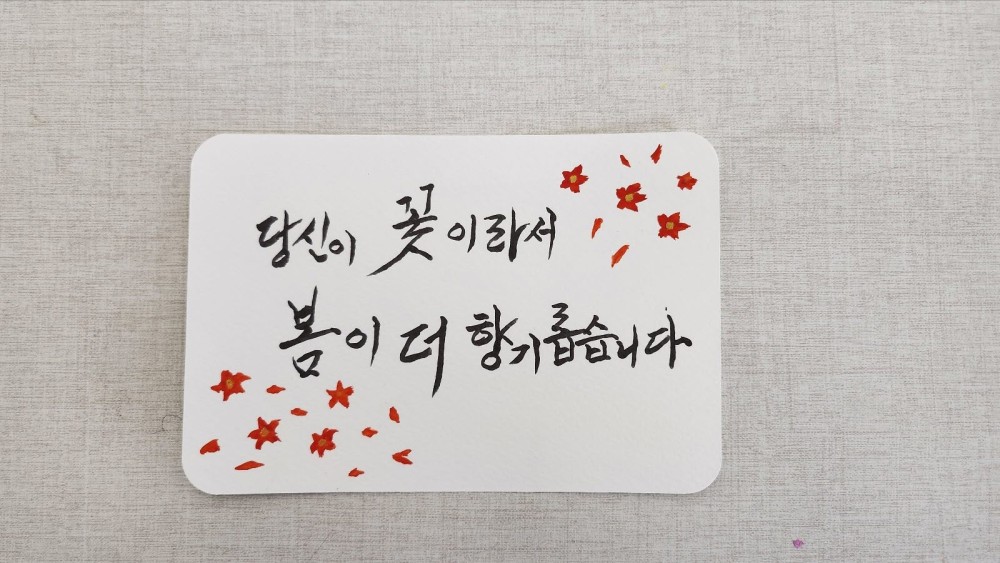 당신이 꽃이라서
봄이 더 향기롭습니다